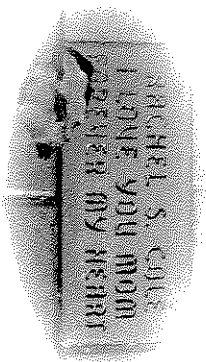 RACHEL S.
I LOVE you mom
FOREVER my HEART